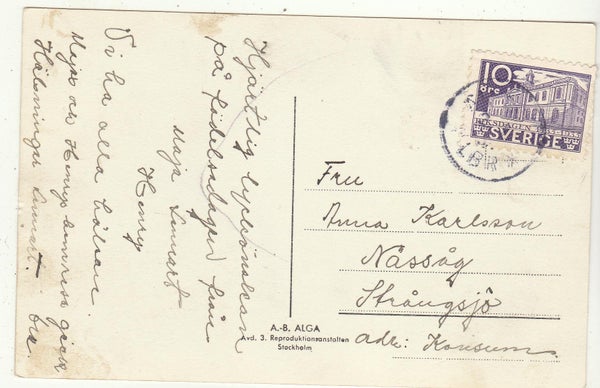 Hjärtlig lyckönskan
på födelsedagen från
Maja Lennart
Henry
Vi ha alla hälsan.
Maja och Henry
Hälsningar Lennart.
10
öre
RIKSDAGEN
SVERIGE
LBR
Fru
Anna Karlsson
Nässåg
Strångsjö
adr: Konsum.
A.-B. ALGA
Avd. 3. Reproduktionsanstalten
Stockholm